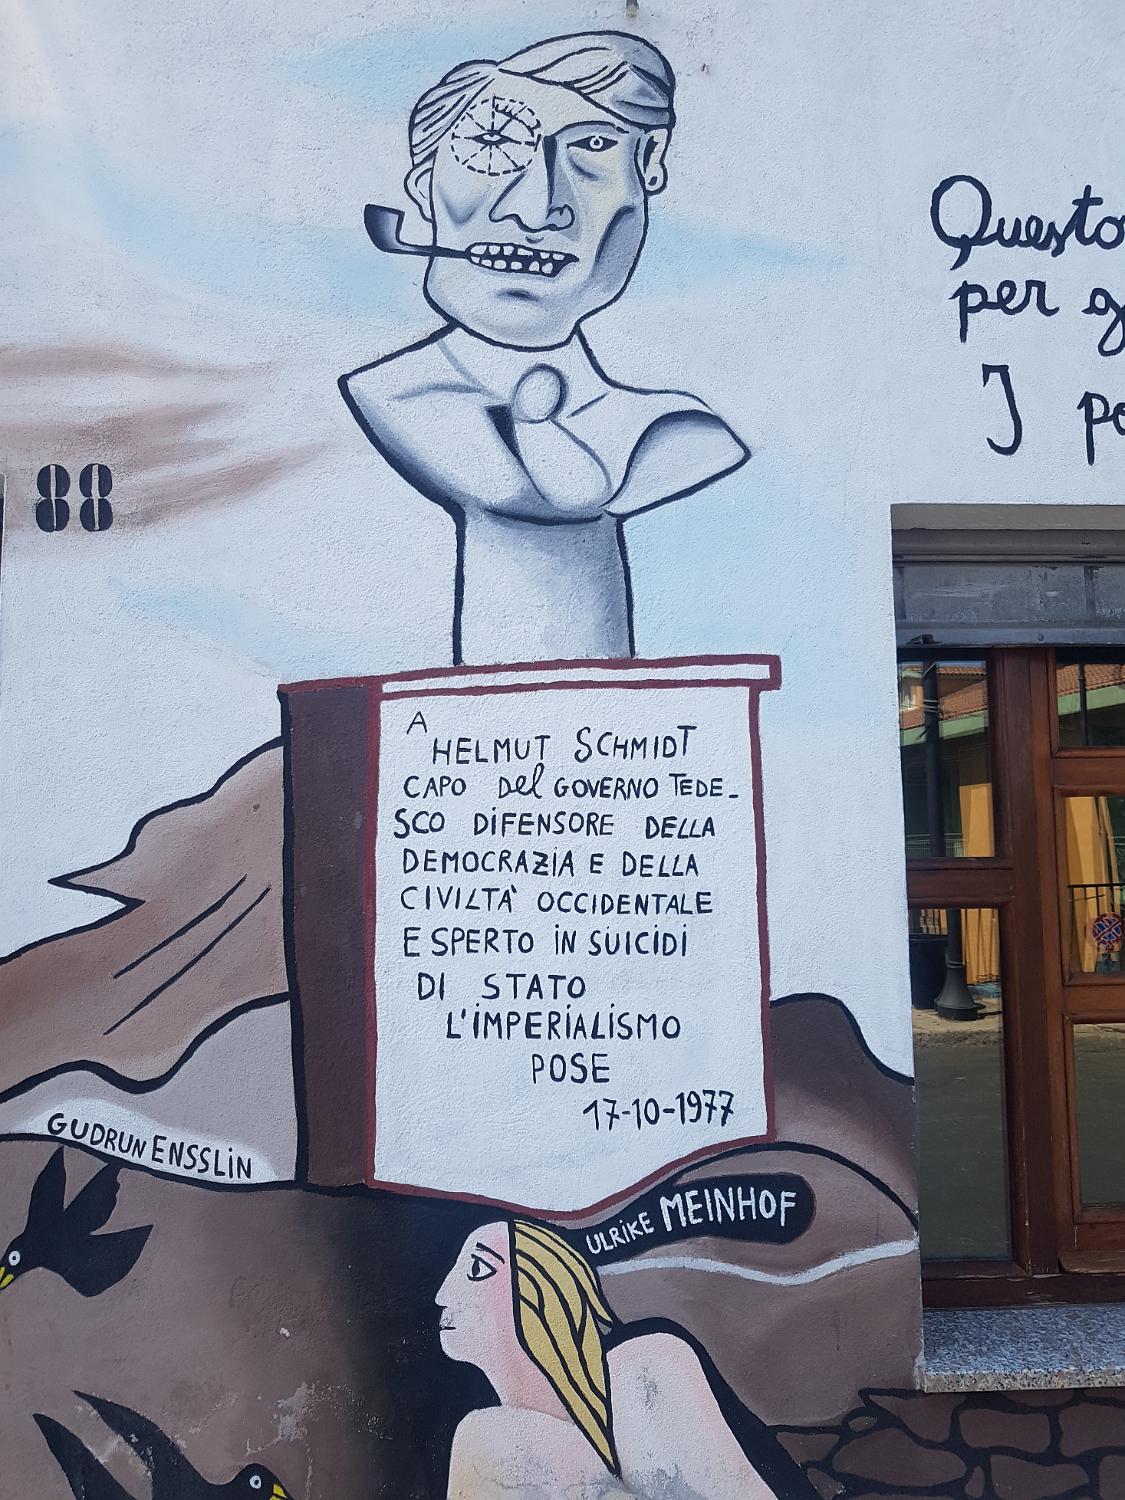 Questo
per g
I pe
88
A
HELMUT SCHMIDT
CAPO DEl GOVERNO TEDE-
SCO DIFENSORE DELLA
DEMOCRAZIA E DELLA
CIVILTÀ OCCIDENTALE
ESPERTO IN SUICIDI
DI STATO
L'IMPERIALISMO
POSE
17-10-1977
GUDRUN ENSSLIN
ULRIKE MEINHOF